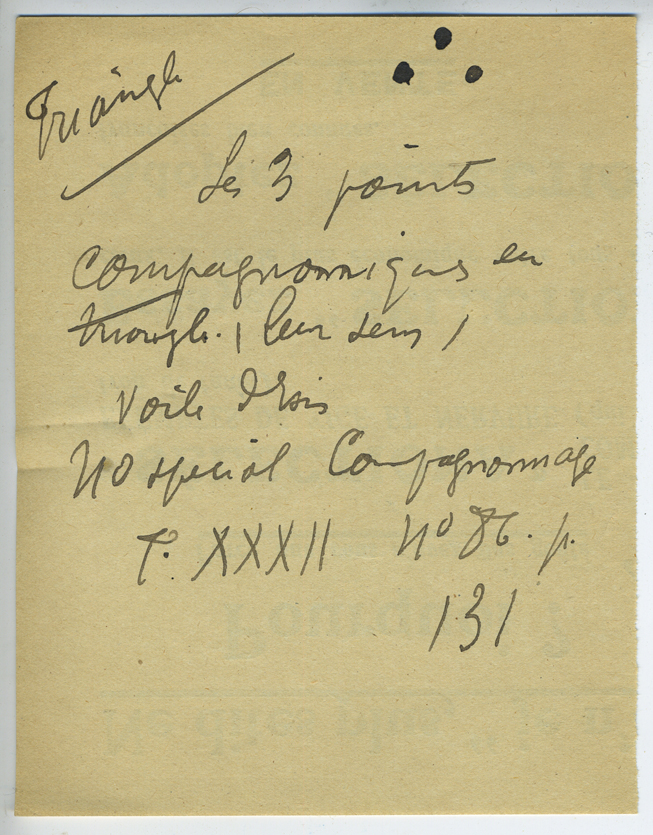 Triangle
∴
Les 3 points
compagnonniques en
triangle. (leur sens)
Voile d'Isis
No spécial Compagnonnage
T. XXXII No 86. p.
131